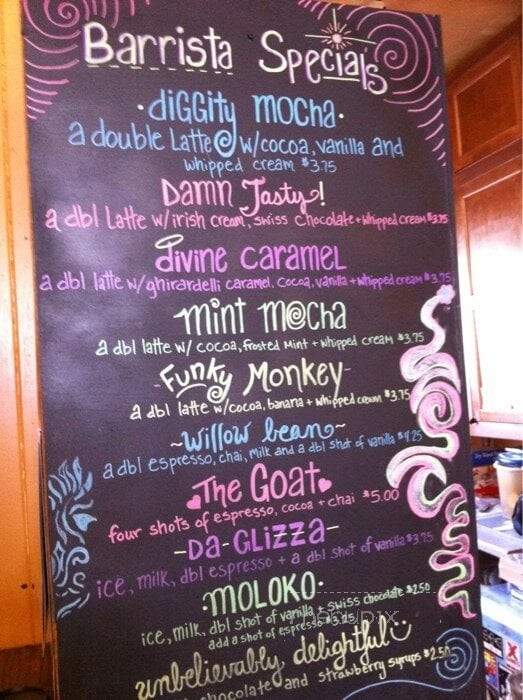 Barrista Specials
·diGGity mocha·
a double Latte w/cocoa, vanilla and
whipped cream $3.75
Damn Tasty!
a dbl Latte w/irish cream, swiss chocolate + whipped cream $3.75
divine caramel
a dbl latte w/ghirardelli caramel, cocoa, vanilla + whipped cream $3.75
mint mocha
a dbl latte w/ cocoa, frosted mint + whipped cream $3.75
-Funky Monkey-
a dbl latte w/cocoa, banana + whipped cream $3.75
~willow bean~
a dbl espresso, chai, milk and a dbl shot of vanilla $4.25
The Goat
four shots of espresso, cocoa + chai $5.00
-Da-Glizza-
ice, milk, dbl espresso + a dbl shot of vanilla $3.75
·MOLOKO·
ice, milk, dbl shot of vanilla + swiss chocolate $2.50
add a shot of espresso $3.25
unbelievably delightful
chocolate and strawberry syrups $2.50